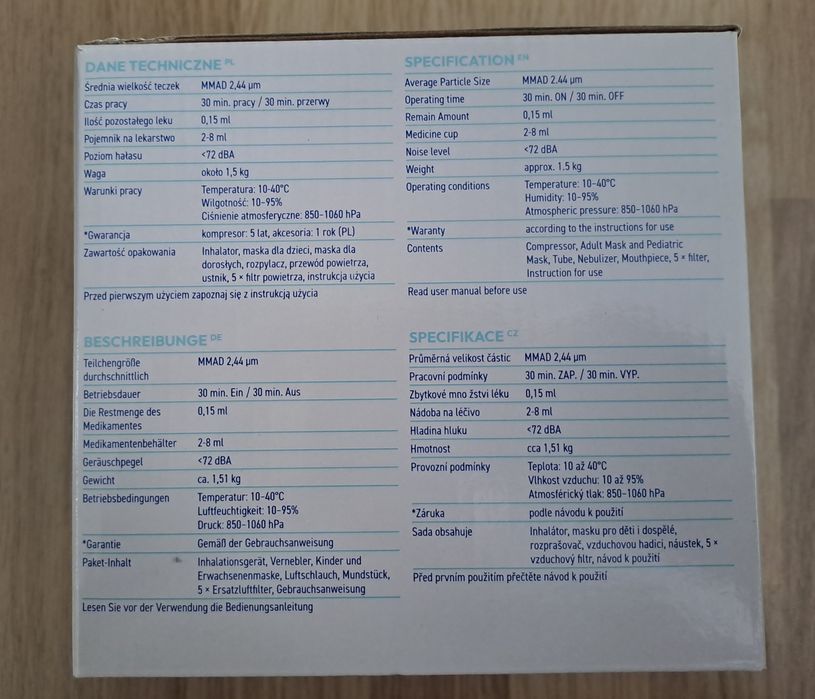 DANE TECHNICZNE PL
Średnia wielkość teczek MMAD 2,44 µm
Czas pracy 30 min. pracy / 30 min. przerwy
Ilość pozostałego leku 0,15 ml
Pojemnik na lekarstwo 2-8 ml
Poziom hałasu <72 dBA
Waga około 1,5 kg
Warunki pracy Temperatura: 10-40°C
Wilgotność: 10-95%
Ciśnienie atmosferyczne: 850-1060 hPa
*Gwarancja kompresor: 5 lat, akcesoria: 1 rok (PL)
Zawartość opakowania Inhalator, maska dla dzieci, maska dla
dorosłych, rozpylacz, przewód powietrza,
ustnik, 5 × filtr powietrza, instrukcja użycia
Przed pierwszym użyciem zapoznaj się z instrukcją użycia
SPECIFICATION EN
Average Particle Size MMAD 2.44 µm
Operating time 30 min. ON / 30 min. OFF
Remain Amount 0,15 ml
Medicine cup 2-8 ml
Noise level <72 dBA
Weight approx. 1.5 kg
Operating conditions Temperature: 10-40°C
Humidity: 10-95%
Atmospheric pressure: 850-1060 hPa
*Waranty according to the instructions for use
Contents Compressor, Adult Mask and Pediatric
Mask, Tube, Nebulizer, Mouthpiece, 5 × filter,
Instruction for use
Read user manual before use
BESCHREIBUNGE DE
Teilchengröße MMAD 2,44 µm
durchschnittlich
Betriebsdauer 30 min. Ein / 30 min. Aus
Die Restmenge des 0,15 ml
Medikamentes
Medikamentenbehälter 2-8 ml
Geräuschpegel <72 dBA
Gewicht ca. 1,51 kg
Betriebsbedingungen Temperatur: 10-40°C
Luftfeuchtigkeit: 10-95%
Druck: 850-1060 hPa
*Garantie Gemäß der Gebrauchsanweisung
Paket-Inhalt Inhalationsgerät, Vernebler, Kinder und
Erwachsenenmaske, Luftschlauch, Mundstück,
5 × Ersatzluftfilter, Gebrauchsanweisung
Lesen Sie vor der Verwendung die Bedienungsanleitung
SPECIFIKACE CZ
Průměrná velikost částic MMAD 2,44 µm
Pracovní podmínky 30 min. ZAP. / 30 min. VYP.
Zbytkové mno žství léku 0,15 ml
Nádoba na léčivo 2-8 ml
Hladina hluku <72 dBA
Hmotnost cca 1,51 kg
Provozní podmínky Teplota: 10 až 40°C
Vlhkost vzduchu: 10 až 95%
Atmosférický tlak: 850-1060 hPa
*Záruka podle návodu k použití
Sada obsahuje Inhalátor, masku pro děti i dospělé,
rozprašovač, vzduchovou hadici, náustek, 5 ×
vzduchový filtr, návod k použití
Před prvním použitím přečtěte návod k použití